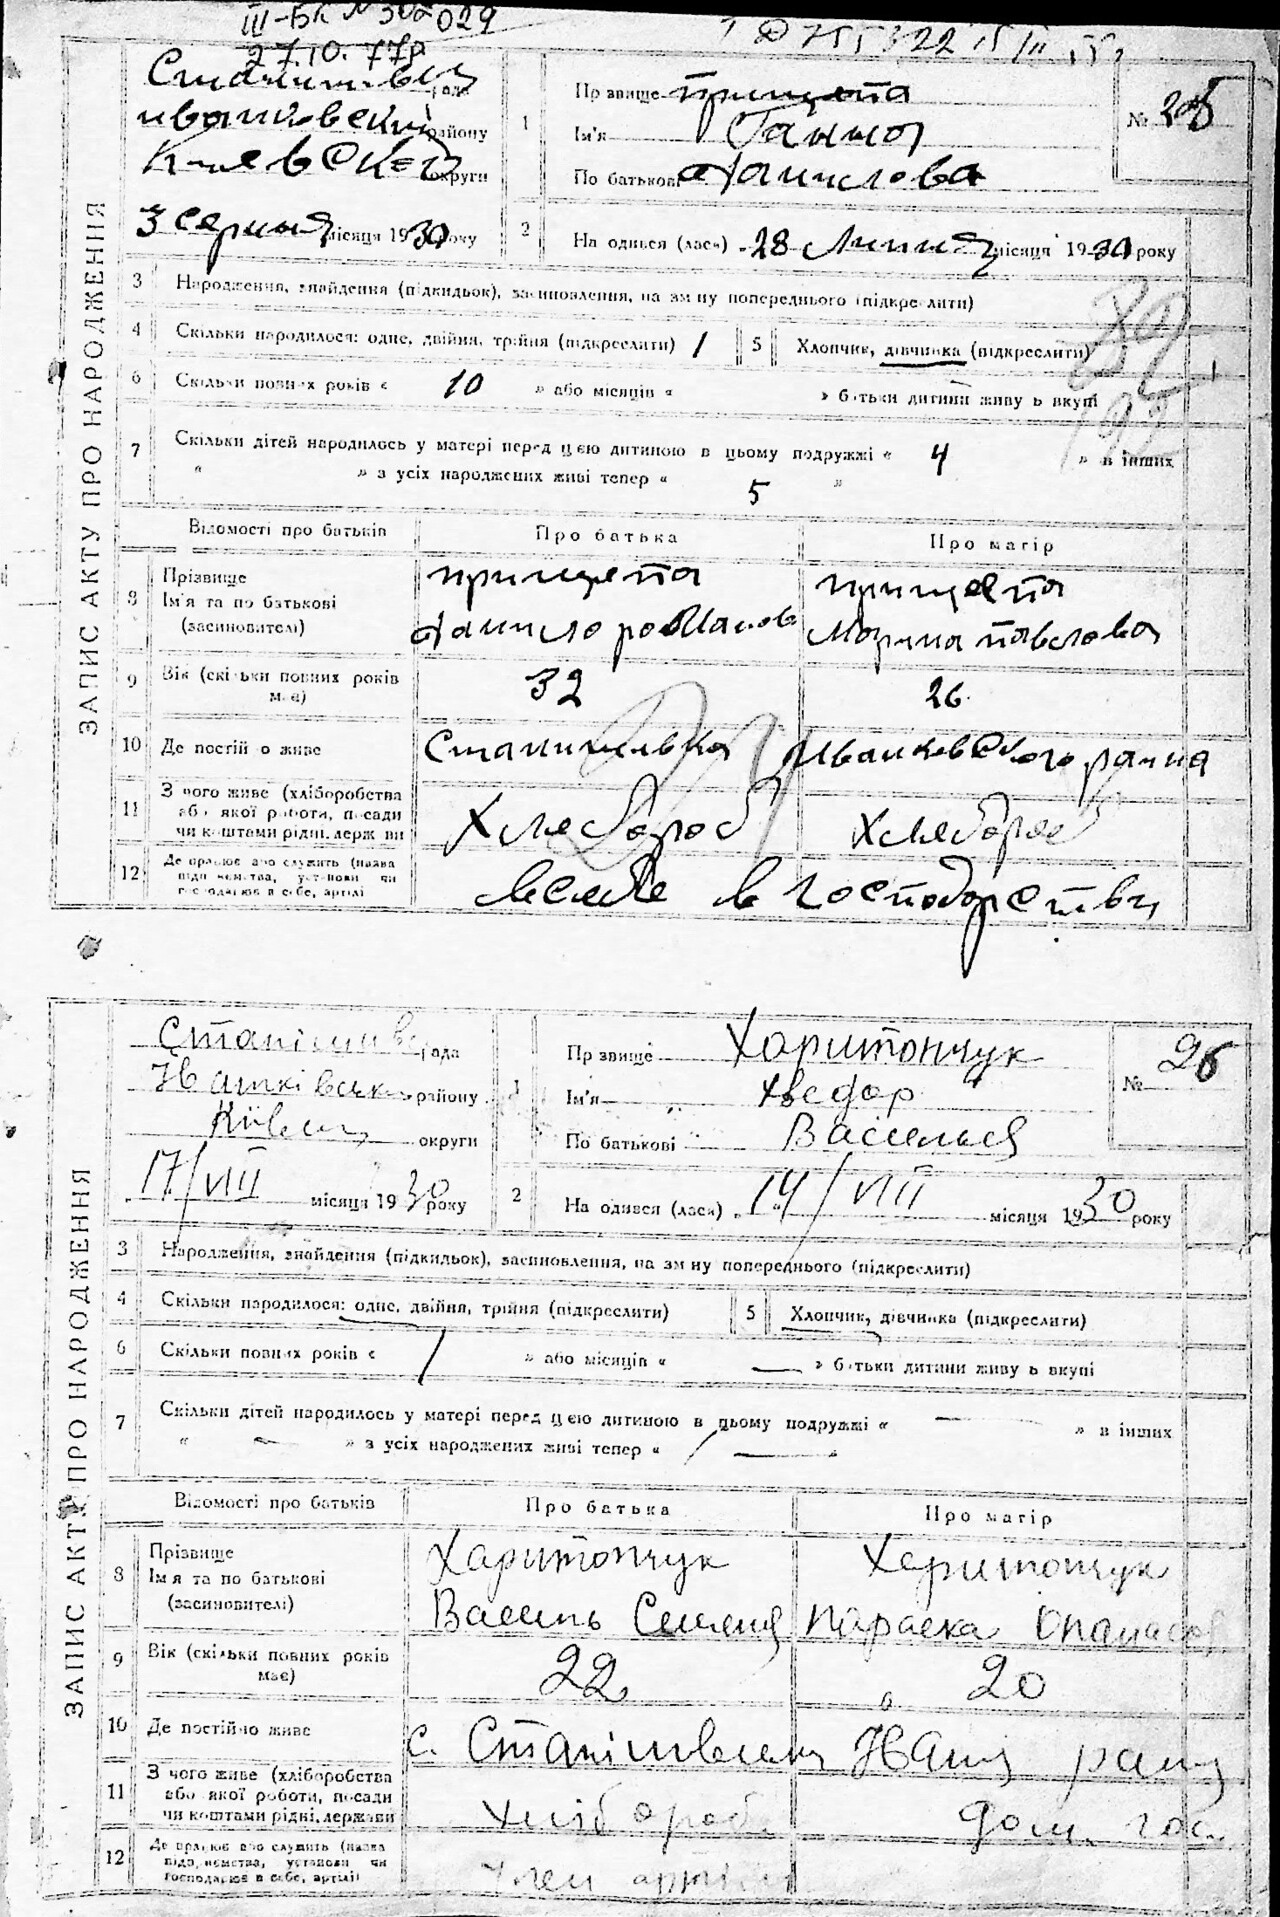 III-БК № 302029
27.10.77р
Станишівська рада
Иванковский району
Киевской округи
3 серпня місяця 1930 року
1 Прізвище Прищепа
Ім'я Ганна
По батькові Данилова
№ 25
2 Народився (лася) „28 Липня місяця 1930 року
ЗАПИС АКТУ ПРО НАРОДЖЕННЯ
3 Народження, знайдення (підкидьок), засиновлення, на зміну попереднього (підкреслити)
4 Скільки народилося: одне, двійня, трійня (підкреслити) 1
5 Хлопчик, дівчинка (підкреслити)
6 Скільки повних років « 10 » або місяців « » батьки дитини живуть вкупі
7 Скільки дітей народилось у матері перед цією дитиною в цьому подружжі « 4 » в інших
« » з усіх народжених живі тепер « 5 »
Відомості про батьків Про батька Про матір
8 Прізвище Прищепа Прищепа
Ім'я та по батькові Данило Романов Марина Павлова
(засиновителі)
9 Вік (скільки повних років має) 32 26
10 Де постійно живе Станишивка Иванковского раина
11 З чого живе (хліборобства або якої роботи, посади чи коштами рідні, держави Хлебороб Хлебороб
12 Де працює або служить (назва підприємства, установи чи господарює в себе, артілі в господорстви
ЗАПИС АКТУ ПРО НАРОДЖЕННЯ
Станішивс рада
Іванківськ району
Київськ округи
17/VIII місяця 1930 року
1 Прізвище Харитончук
Ім'я Хведор
По батькові Васильєв
№ 26
2 Народився (лася) „14/VIII місяця 1930 року
3 Народження, знайдення (підкидьок), засиновлення, на зміну попереднього (підкреслити)
4 Скільки народилося: одне, двійня, трійня (підкреслити)
5 Хлопчик, дівчинка (підкреслити)
6 Скільки повних років « 1 » або місяців « — » батьки дитини живуть вкупі
7 Скільки дітей народилось у матері перед цією дитиною в цьому подружжі « — » в інших
« — » з усіх народжених живі тепер « — »
Відомості про батьків Про батька Про матір
8 Прізвище Харитончук Харитончук
Ім'я та по батькові Василь Семенов Параска Опанасов
(засиновителі)
9 Вік (скільки повних років має) 22 20
10 Де постійно живе с. Іван рай
11 З чого живе (хліборобства або якої роботи, посади чи коштами рідні, держави хлібороб дом. гос.
12 Де працює або служить (назва підприємства, установи чи господарює в себе, артілі) член артіли